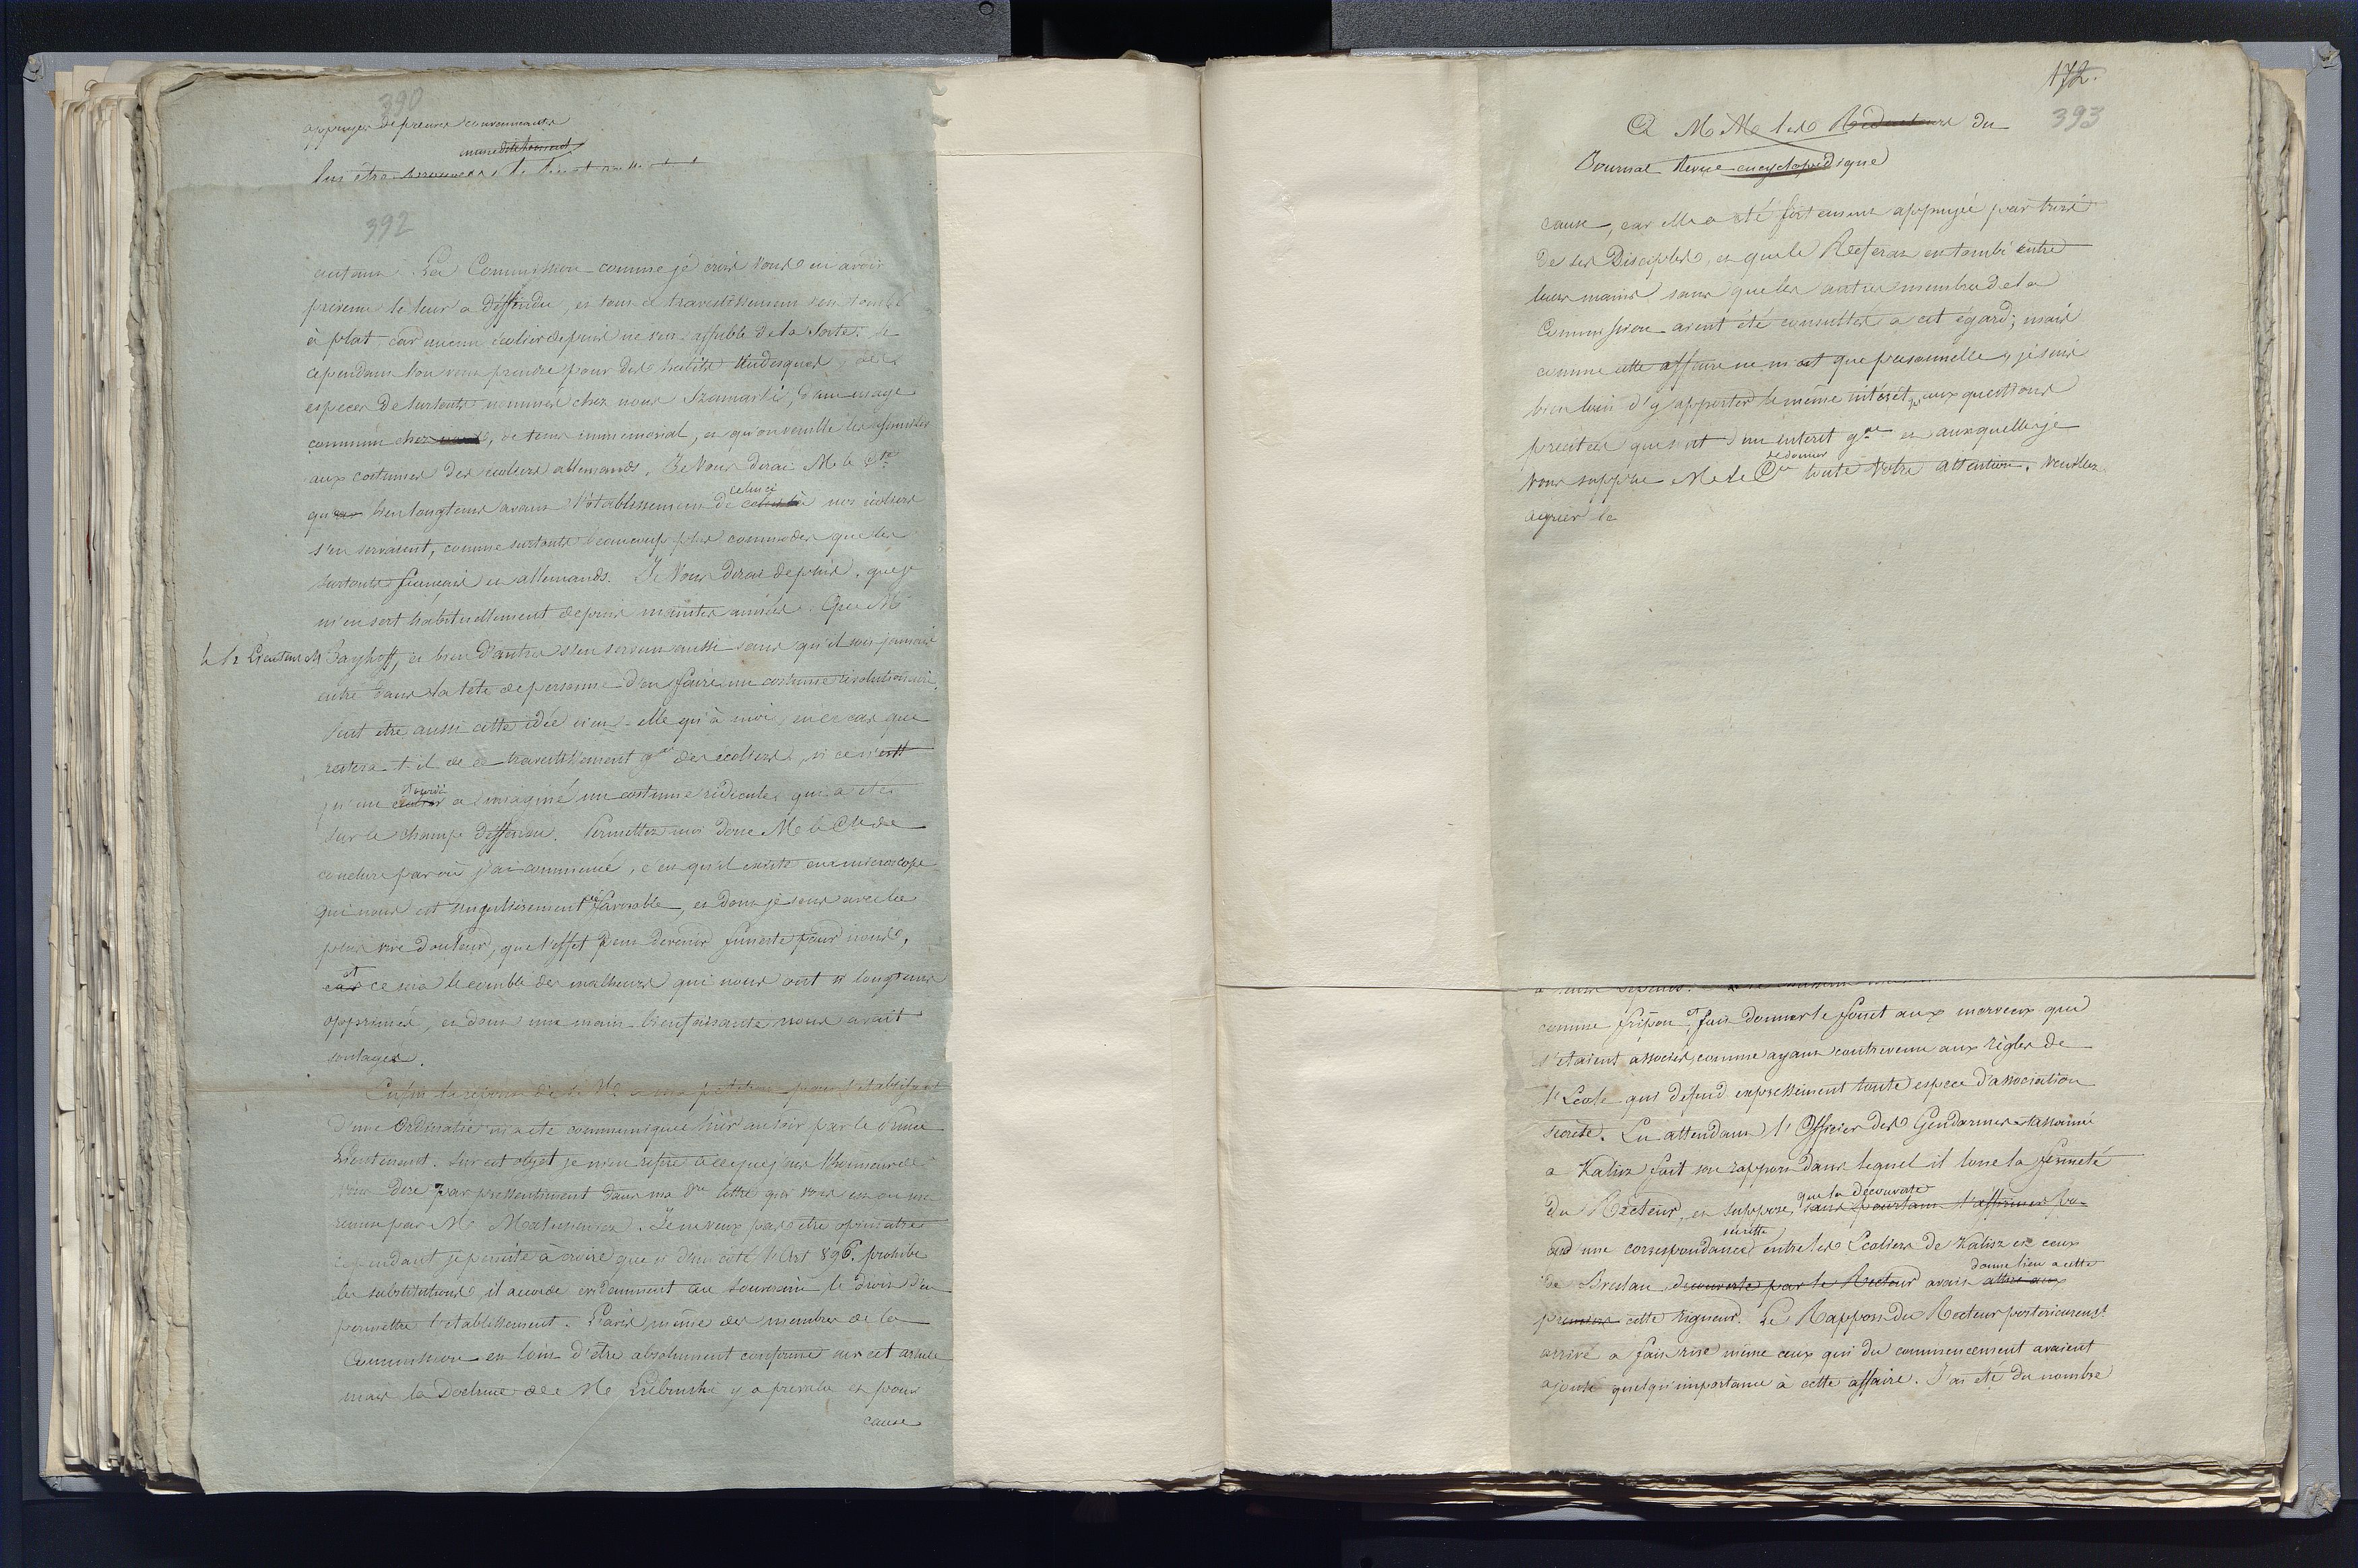 390
appuyer de preuves convenantes
lui être
392
autant. La Commission comme je crois vous en avoir
prevenu le leur a deffendu, et tout ce travestissement est tombé
à plat, car aucun écolier depuis ne s'est affublé de la sorte. Si
cependant l'on veut prendre pour des habits tudesques, des
especes de surtouts nommés chez nous Szamarki, d'un usage
commun chez nous, de tems immemorial, et qu'on veuille les assimiler
aux costumes des écoliers allemands. Je vous dirai M. le Cte
que bien longtems avant l'établissement de celui ci nos écoliers
s'en servaient, comme surtouts beaucoup plus commodes que les
surtouts français et allemands. Je vous dirai de plus, que je
m'en sert habituellement depuis maintes années. Que Mr
le Lieutenant Fayhoff, et bien d'autres s'en servent aussi sans qu'il soit jamais
entré dans la tête de personne d'en faire un costume révolutionaire.
Peut etre aussi cette idée vient-elle qu'à moi, en ce cas que
restera-t-il de ce travestissement gal des écoliers, si ce n'est
qu'un étourdi a imaginé un costume ridicule, qui a été
sur le champ deffendu. Permettez moi donc M. le Cte de
conclure par où j'ai commencé, c'est qu'il existe un microscope
qui nous est singulièrement défavorable, et dont je sens avec la
plus vive douleur, que l'effet peut devenir funeste pour nous,
et ce sera le comble des malheurs qui nous ont si longtems
opprimés, et dont une main bienfaisante nous avait
soulagés.
Enfin la réponse de S. M. a ma petition pour l'etablissement
d'une Ordinatie m'a été communiquée hier au soir par le Prince
Lieutenant. Sur cet objet je m'en refere à ce que j'ais l'honneur de
vous dire par pressentiment dans ma dre lettre qui vous est
remise par Mr Matuszewicz. Je ne veux pas être opiniatre
cependant je persiste à croire que si d'un coté l'Art 896. prohibe
les substitutions, il accorde evidemment au souverain le droit d'en
permettre l'etablissement. L'avis même des membres de la
Commission est loin d'être absolument conforme sur cet article
mais la Doctrine de Mr Lubinski y a prevalu et pour
cause
172.
393
A M M les Rédacteurs du
Journal Revue encyclopédique
cause, car elle a été fortement appuyée par trois
de ses Disciples, et que le Referat est tombé entre
leurs mains sans que les autres membres de la
Commission aient été consultés a cet égard; mais
comme cette affaire ne m'est que personnelle, je suis
bien loin d'y apporter le même intérêt, qu'aux questions
precitées qui sont d'un interet gal et auxquelles je
vous supplie M. le Cte de donner toute votre attention. Veuillez
agréer &c
comme fripon et fait donner le fouet aux morveux qui
s'etaient associés, comme ayant contrevenu aux règles de
l'École qui défend expressément toute espece d'association
secrete. En attendant l'Officier des Gendarmes stationné
a Kalisz fait son rapport dans lequel il loue la fermeté
du Recteur, et suppose, que la découverte sans pourtant l'affirmer
d'une correspondance secrette entre les Ecoliers de Kalisz et ceux
de Breslau, découverte par le Recteur avait donné lieu a cette
premiere cette rigueur. Le Rapport du Recteur posterieurement
arrivé a fait rire même ceux qui du commencement avaient
ajouté quelqu'importance à cette affaire. J'ai été du nombre